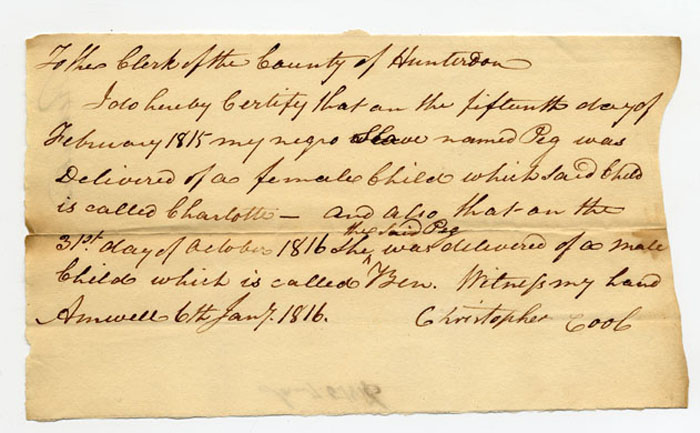 To the Clerk of the County of Hunterdon
I do hereby Certify that on the fifteenth day of
February 1815 my negro Slave named Peg was
Delivered of a female Child which said Child
is called Charlotte — and also that on the
the said Peg
31st day of October 1816 she ^ was delivered of a male
Child which is called Ben. Witness my hand
Amwell 6th Jany. 1816. Christopher Cool